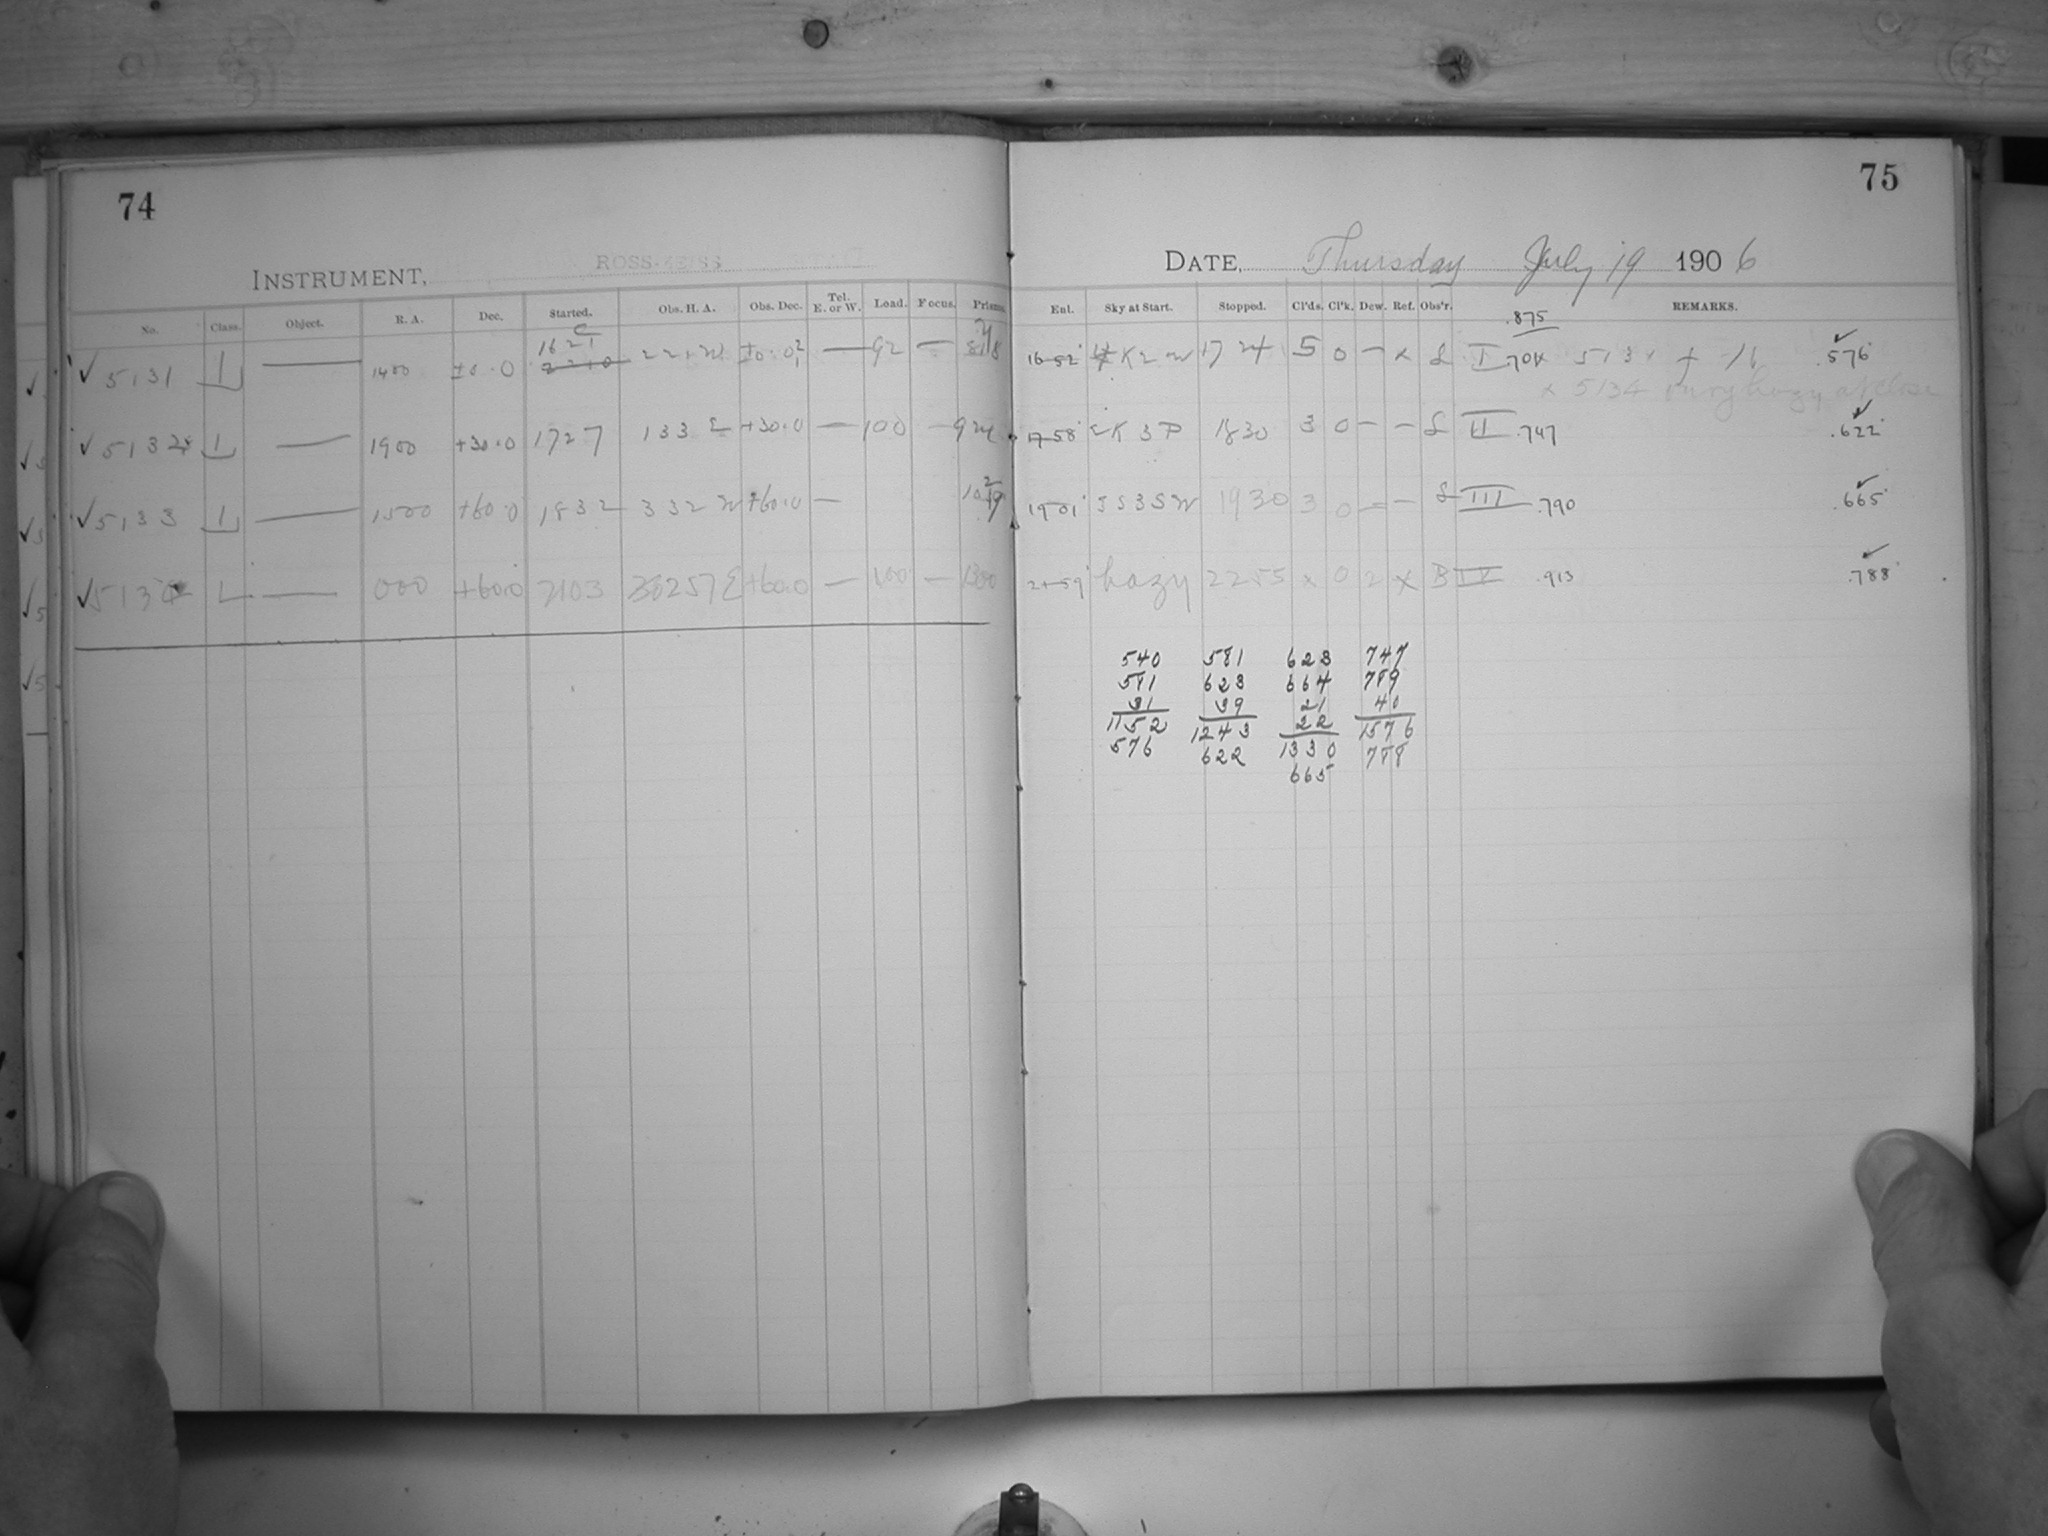 74
INSTRUMENT, ROSS-ZEISS
No. Class. Object. R. A. Dec. Started. Obs. H. A. Obs. Dec. Tel. E. or W. Load. Focus. Prisms.
✓ 5131 L — 1400 ±0.0 1621 — 92 — 818
✓ 5132 L — 1900 +30.0 1727 133 E +30.0 — 100 — 924
✓ 5133 L — 1500 +60.0 1832 332 W +60.0 —
✓ 5134 L — 000 +60.0 2103 +60.0 — 100 — 1300
75
DATE, Thursday July 19 1906
Enl. Sky at Start. Stopped. Cl'ds. Cl'k. Dew. Ref. Obs'r. REMARKS.
.875
1652 K2W 1724 5 0 — x L I .704 x 5131 .576
x 5134 very hazy at close
1758 K3P 1830 3 0 — — L II .747 .622
1901 SS3SW 1930 3 0 — — L III .790 .665
2159 hazy 2255 x 0 2 x B IV .913 .788
540 581 623 747
581 623 664 789
31 39 21 40
1152 1243 22 1576
576 622 1330 788
665